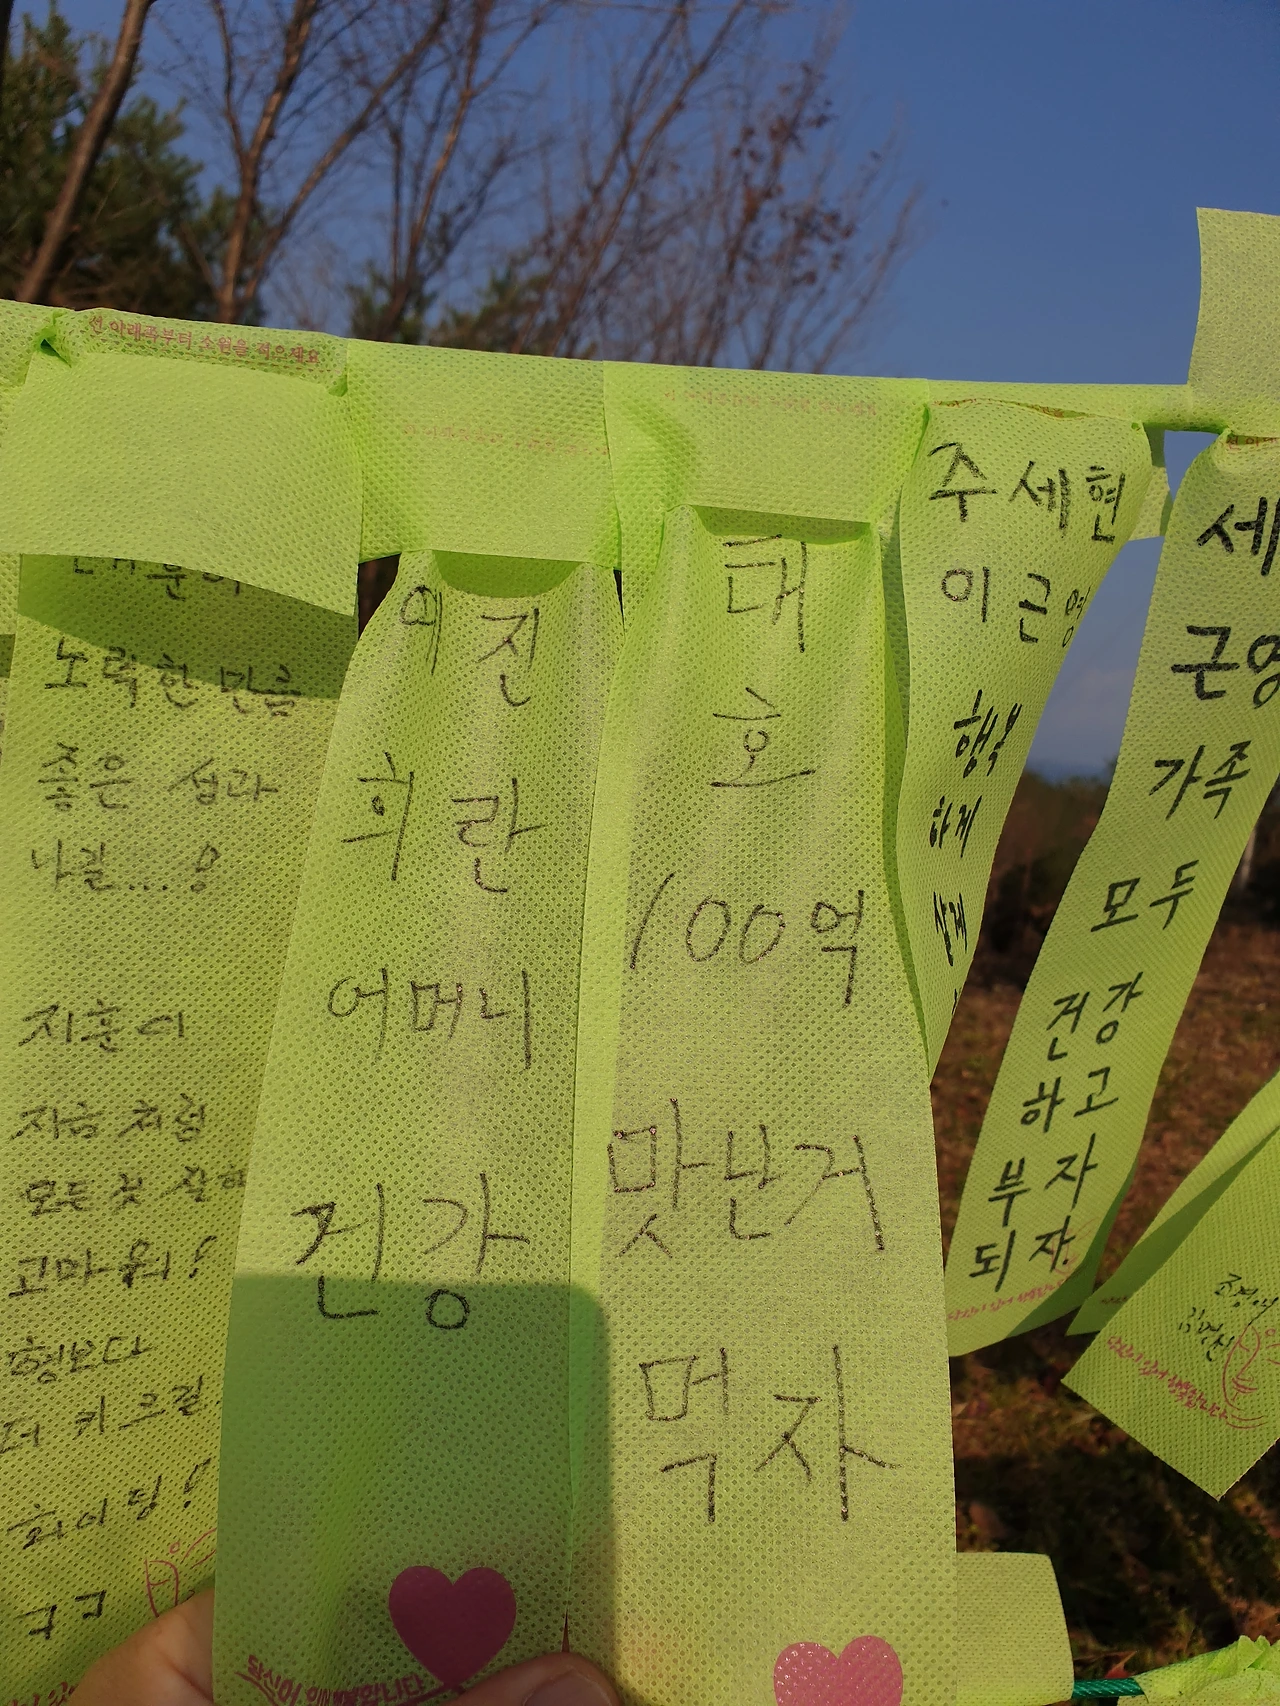 선 아래쪽부터 소원을 적으세요
노력한 만큼
좋은 성과
나길...!
지훈이
지금 처럼
모든 것 잘하
고마워!
형보다
더 키 크길
화이팅!
예진
희란
어머니
건강
당신이 있어 행복합니다
태
호
100억
맛난거
먹자
주세현
이근영
행복
하게
살게
세
근영
가족
모두
건강
하고
부자
되자
당신이 있어 행복합니다
당신이 있어 행복합니다